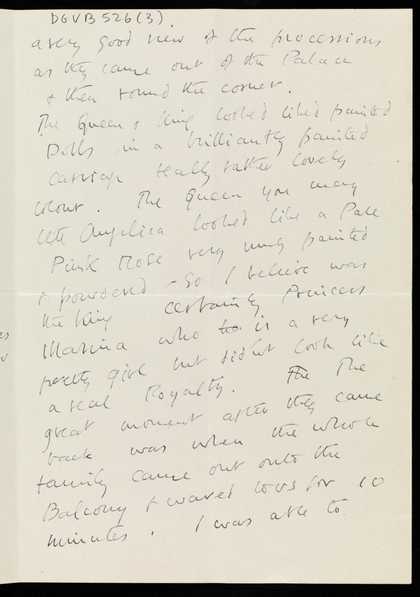 DGVB526(3).
a very good view of the processions
as they came out of the Palace
& then round the corner.
The Queen & King looked like painted
Dolls in a brilliantly painted
carriage really rather lovely
colour. The Queen you may
tell Angelica looked like a Pale
Pink Rose very much painted
& powdered – so I believe was
the King certainly Princess
Marina who is a very
pretty girl but didnt look like
a real Royalty. The
great moment after they came
back was when the whole
family came out onto the
Balcony & waved to us for 10
minutes. I was able to